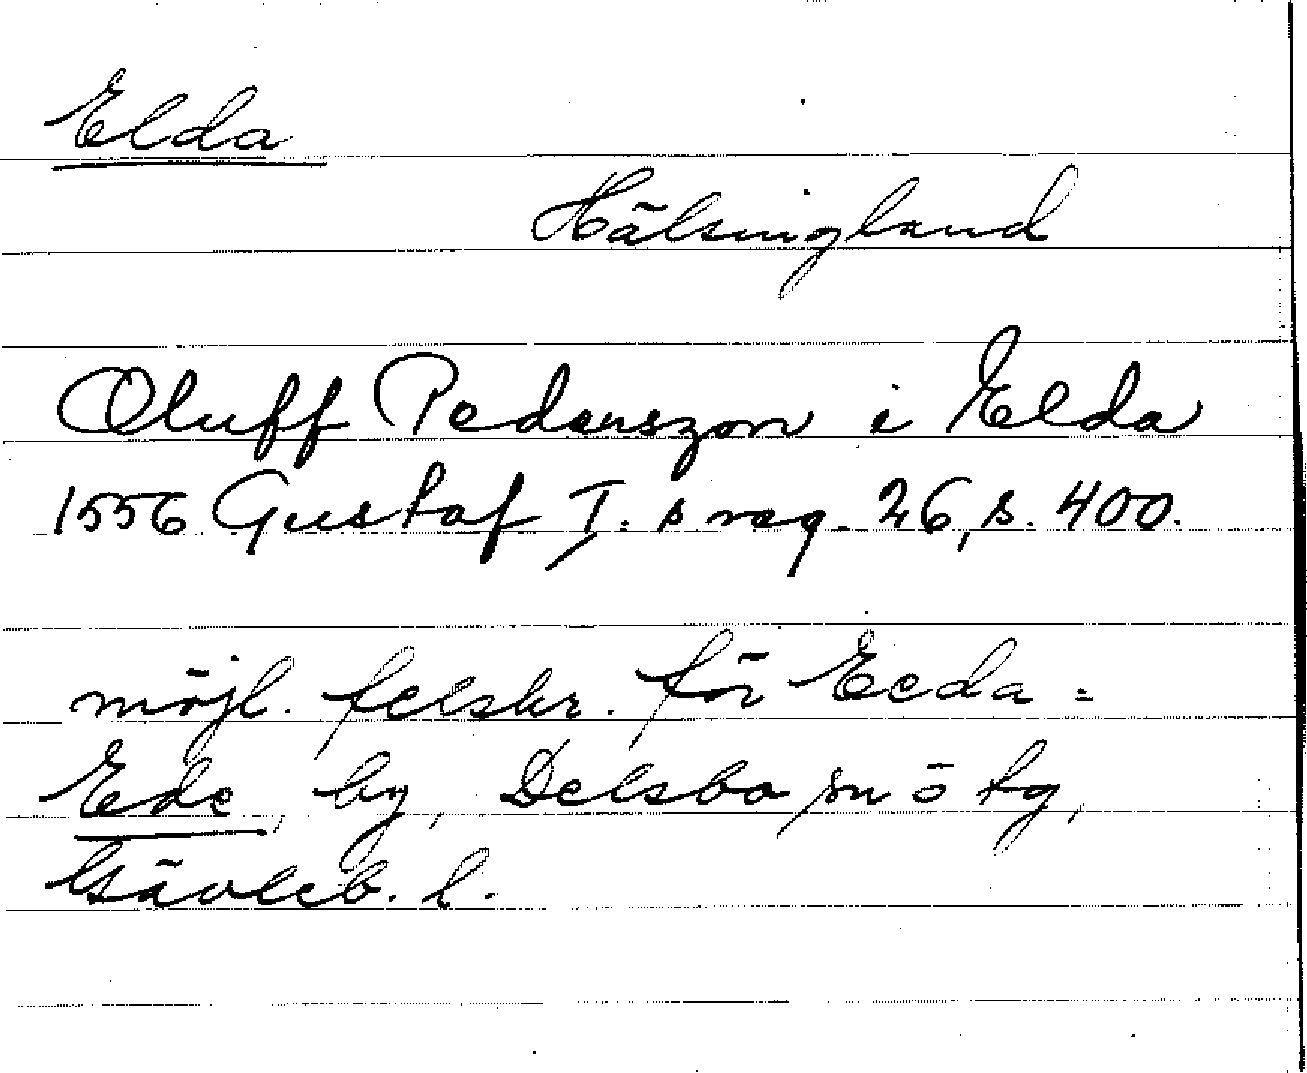 Elda
Hälsingland
Oluff Pederszon i Elda
1556 Gustaf I:s reg. 26, s. 400.
möjl. felskr. för Eeda =
Ede, by, Delsbo sn o tg,
Gävleb. l.